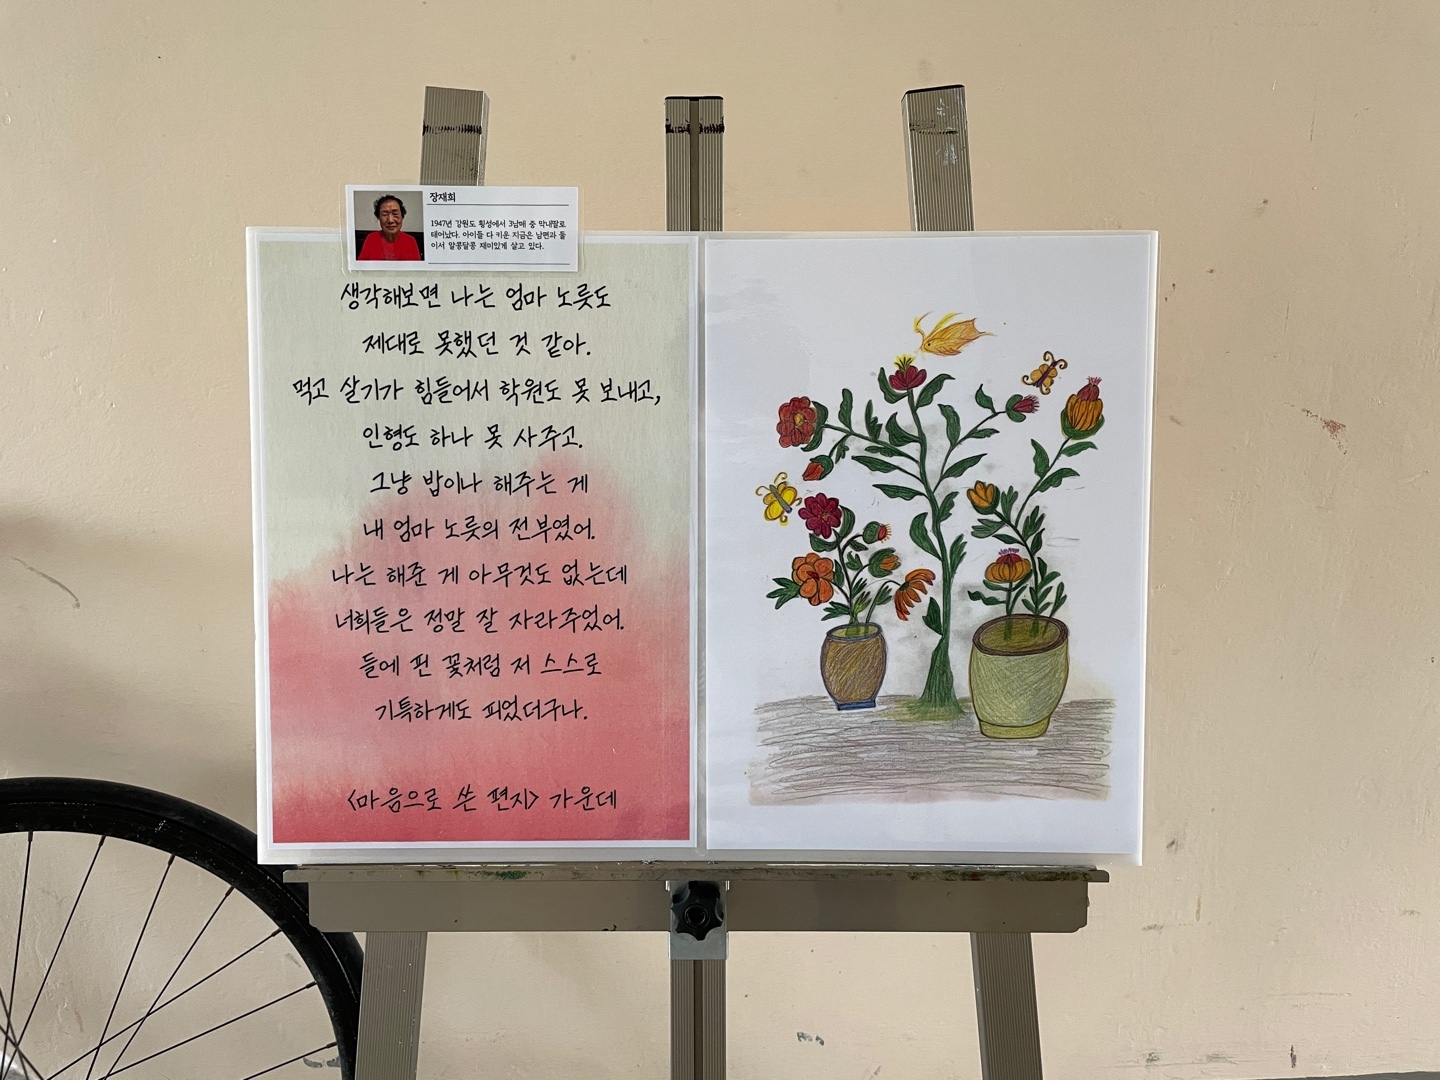 장재희
1947년 강원도 횡성에서 3남매 중 막내딸로
태어났다. 아이들 다 키운 지금은 남편과 둘
이서 알콩달콩 재미있게 살고 있다.
생각해보면 나는 엄마 노릇도
제대로 못했던 것 같아.
먹고 살기가 힘들어서 학원도 못 보내고,
인형도 하나 못 사주고.
그냥 밥이나 해주는 게
내 엄마 노릇의 전부였어.
나는 해준 게 아무것도 없는데
너희들은 정말 잘 자라주었어.
들에 핀 꽃처럼 저 스스로
기특하게도 피었더구나.
<마음으로 쓴 편지> 가운데